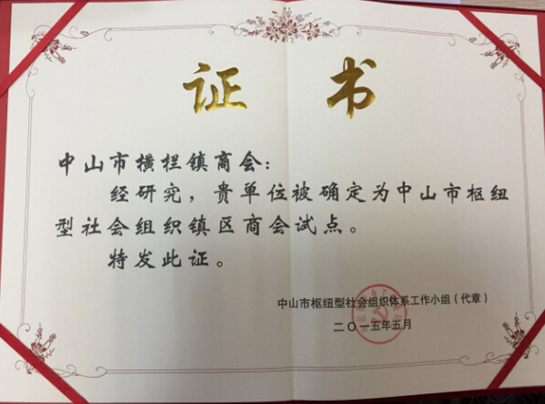 证 书
中山市横栏镇商会：
经研究，贵单位被确定为中山市枢纽
型社会组织镇区商会试点。
特发此证。
中山市枢纽型社会组织体系工作小组（代章）
二〇一五年五月